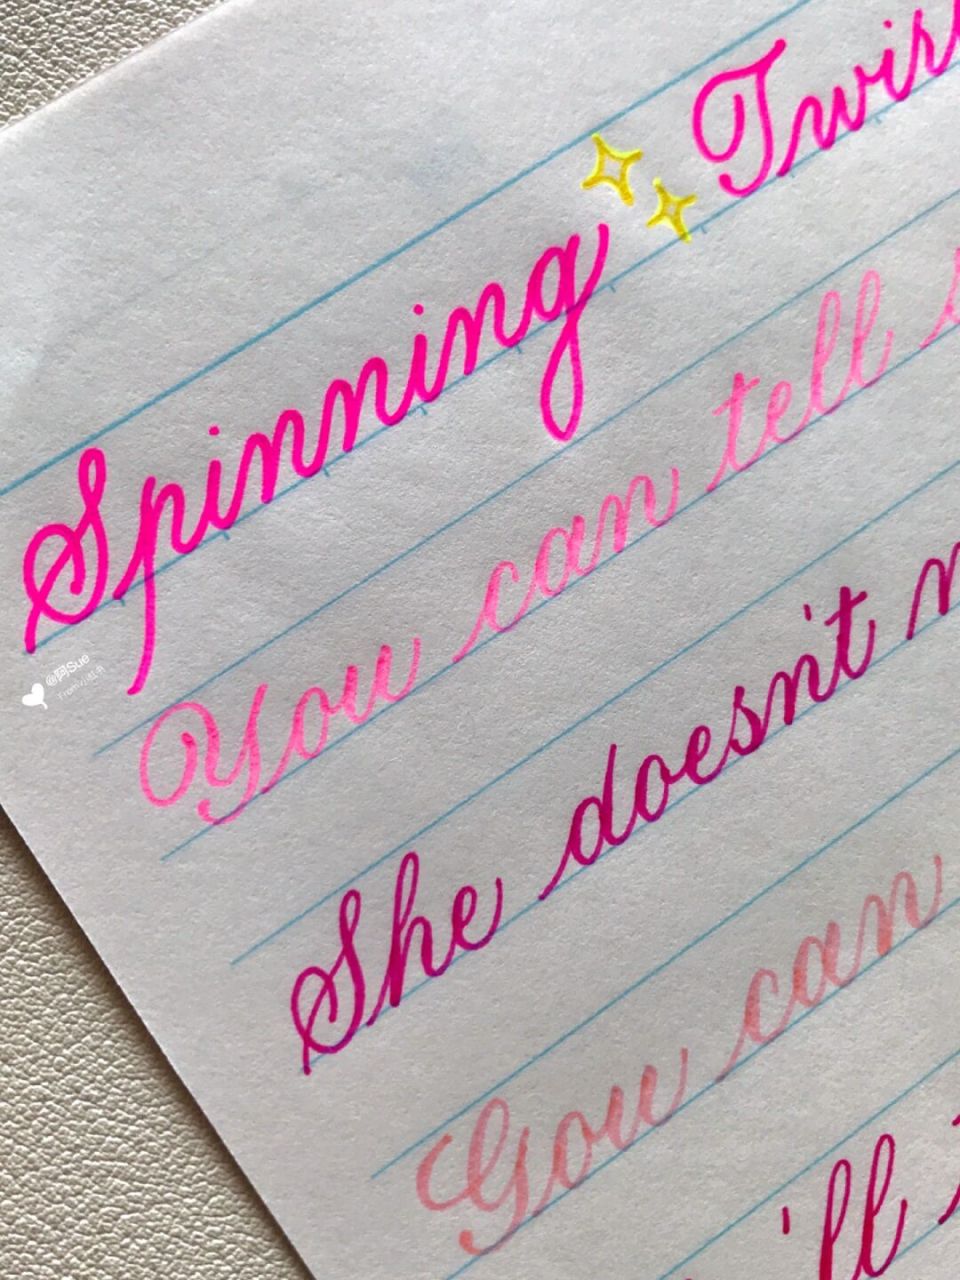 Spinning Twirl
You can tell
She doesn't
You can
'll
@阿Sue